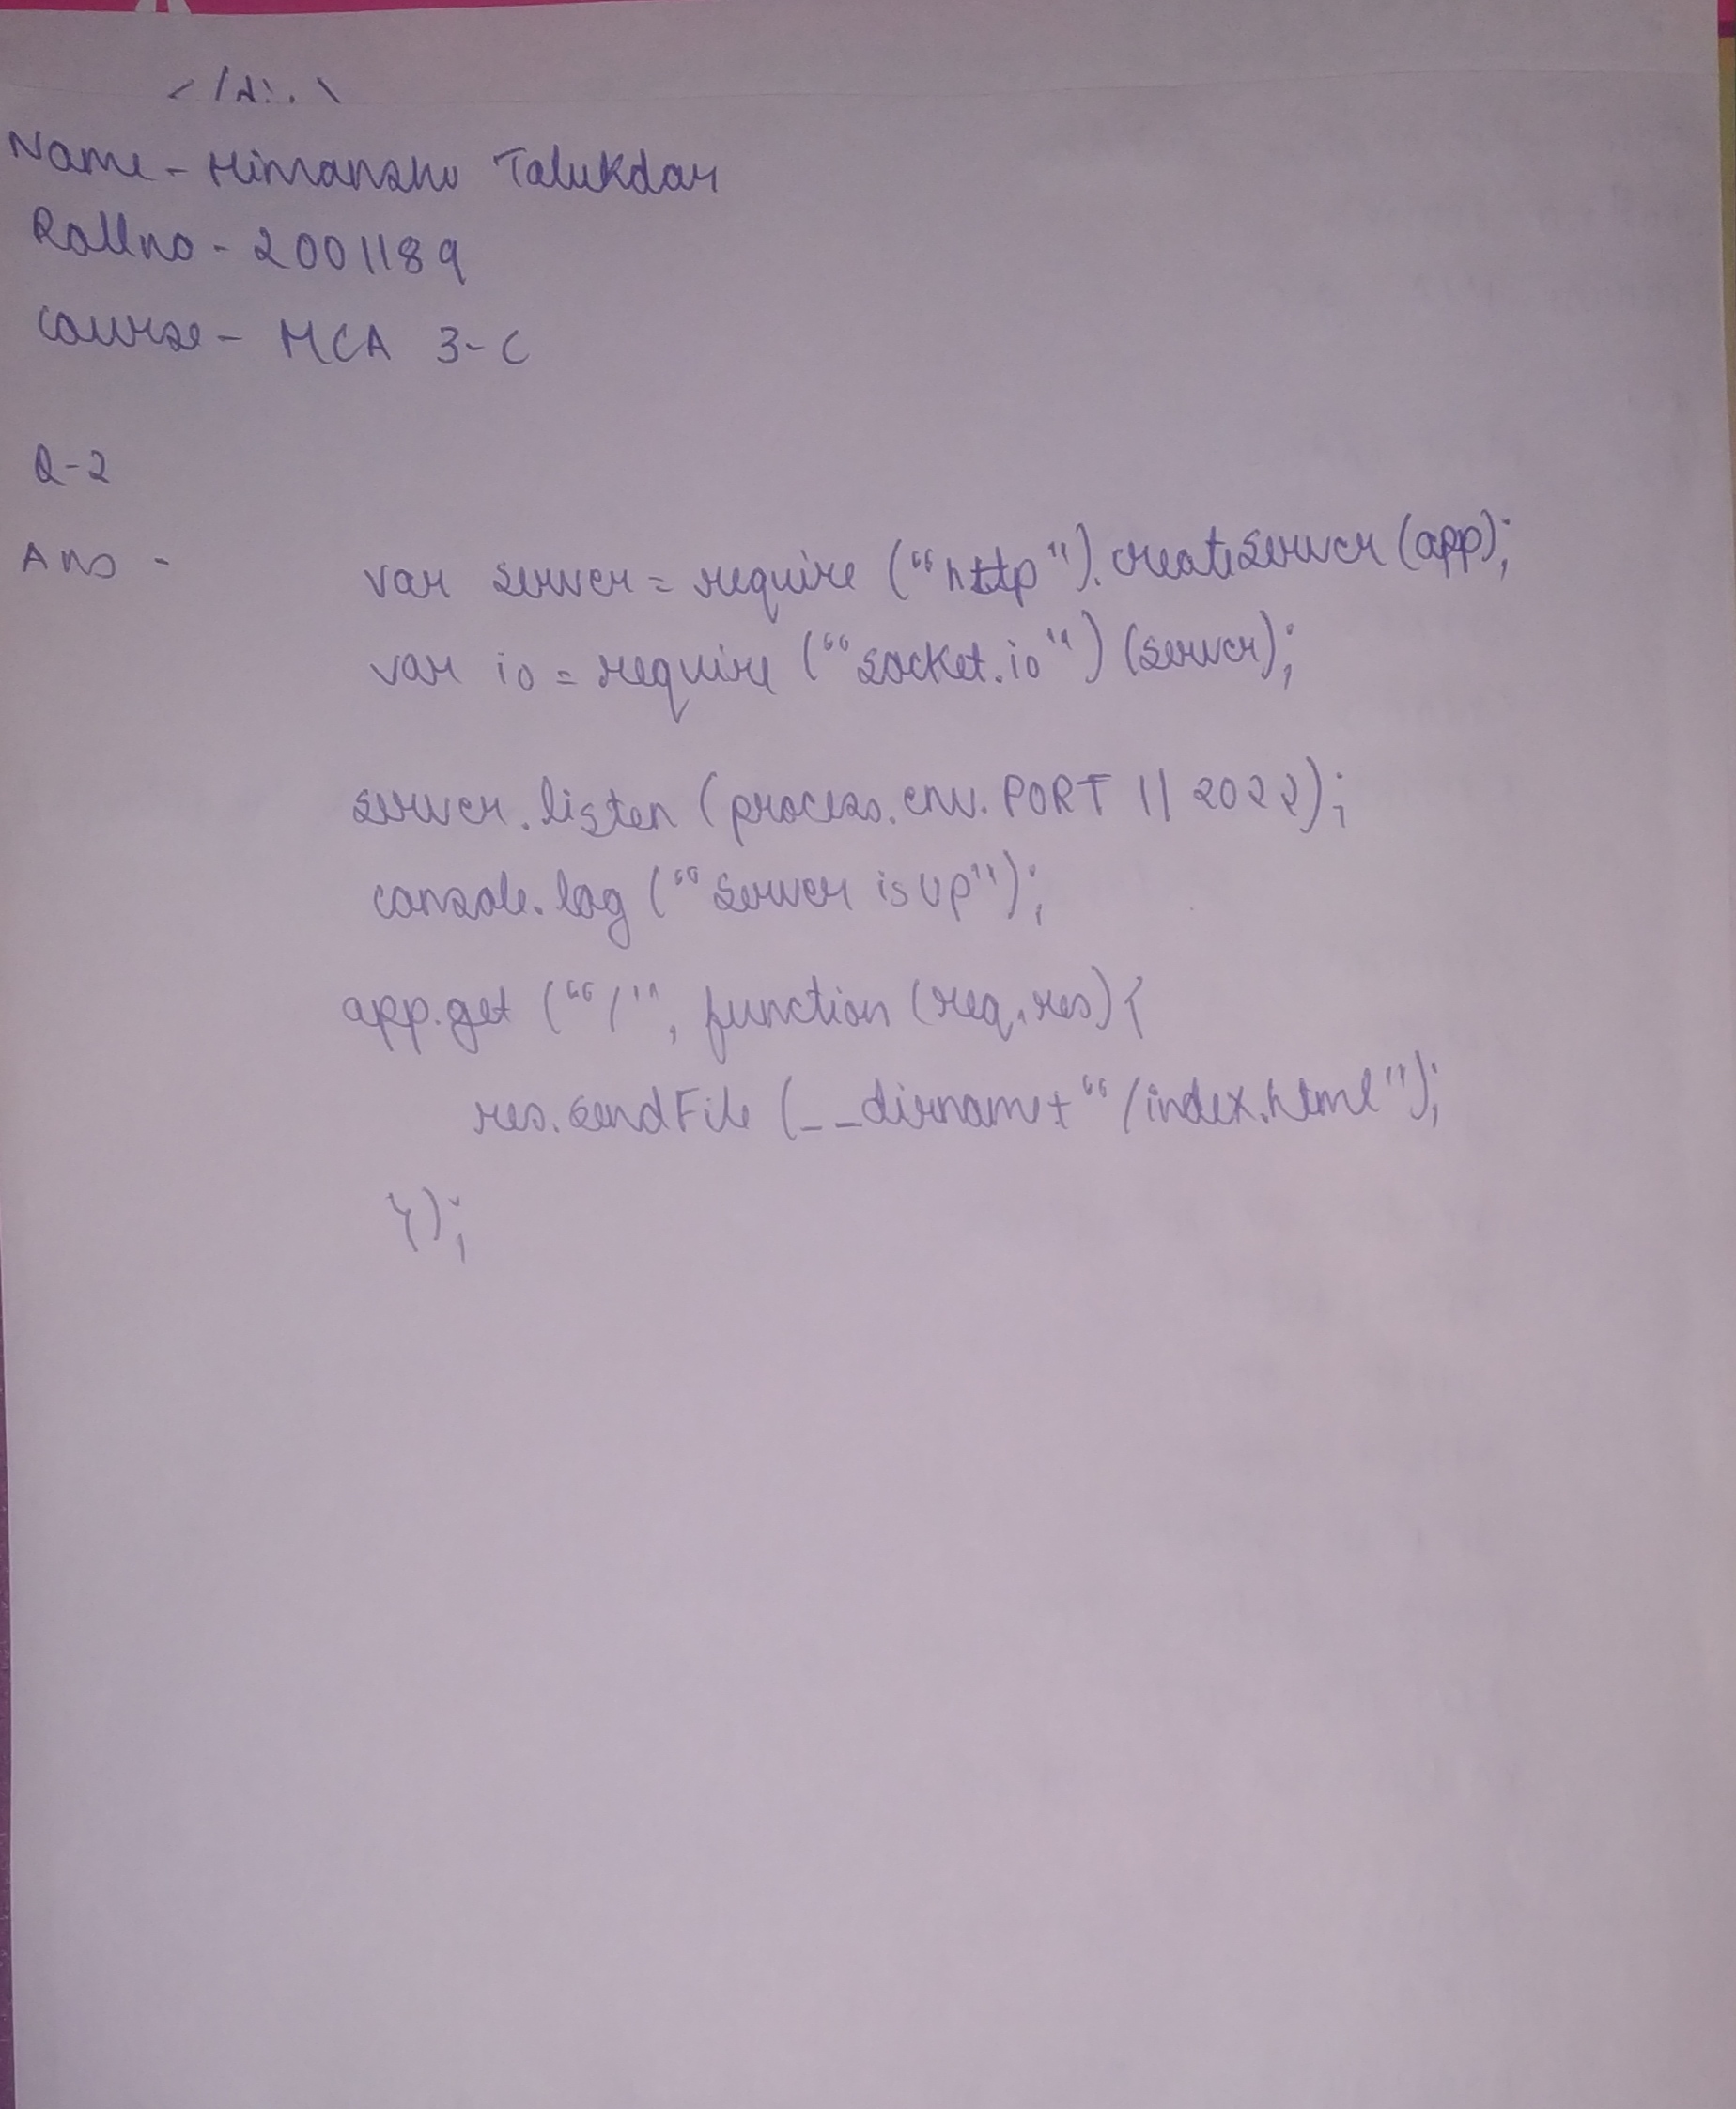 Name - Himanshu Talukdar
Rollno - 2001189
Course - MCA 3-C
Q-2
Ans - var server = require ("http"). createServer (app);
var io = require ("socket.io") (server);
server.listen (process.env.PORT || 2022);
console.log ("Server is up");
app.get ("/", function (req, res) {
res.sendFile (__dirname + "/index.html");
});